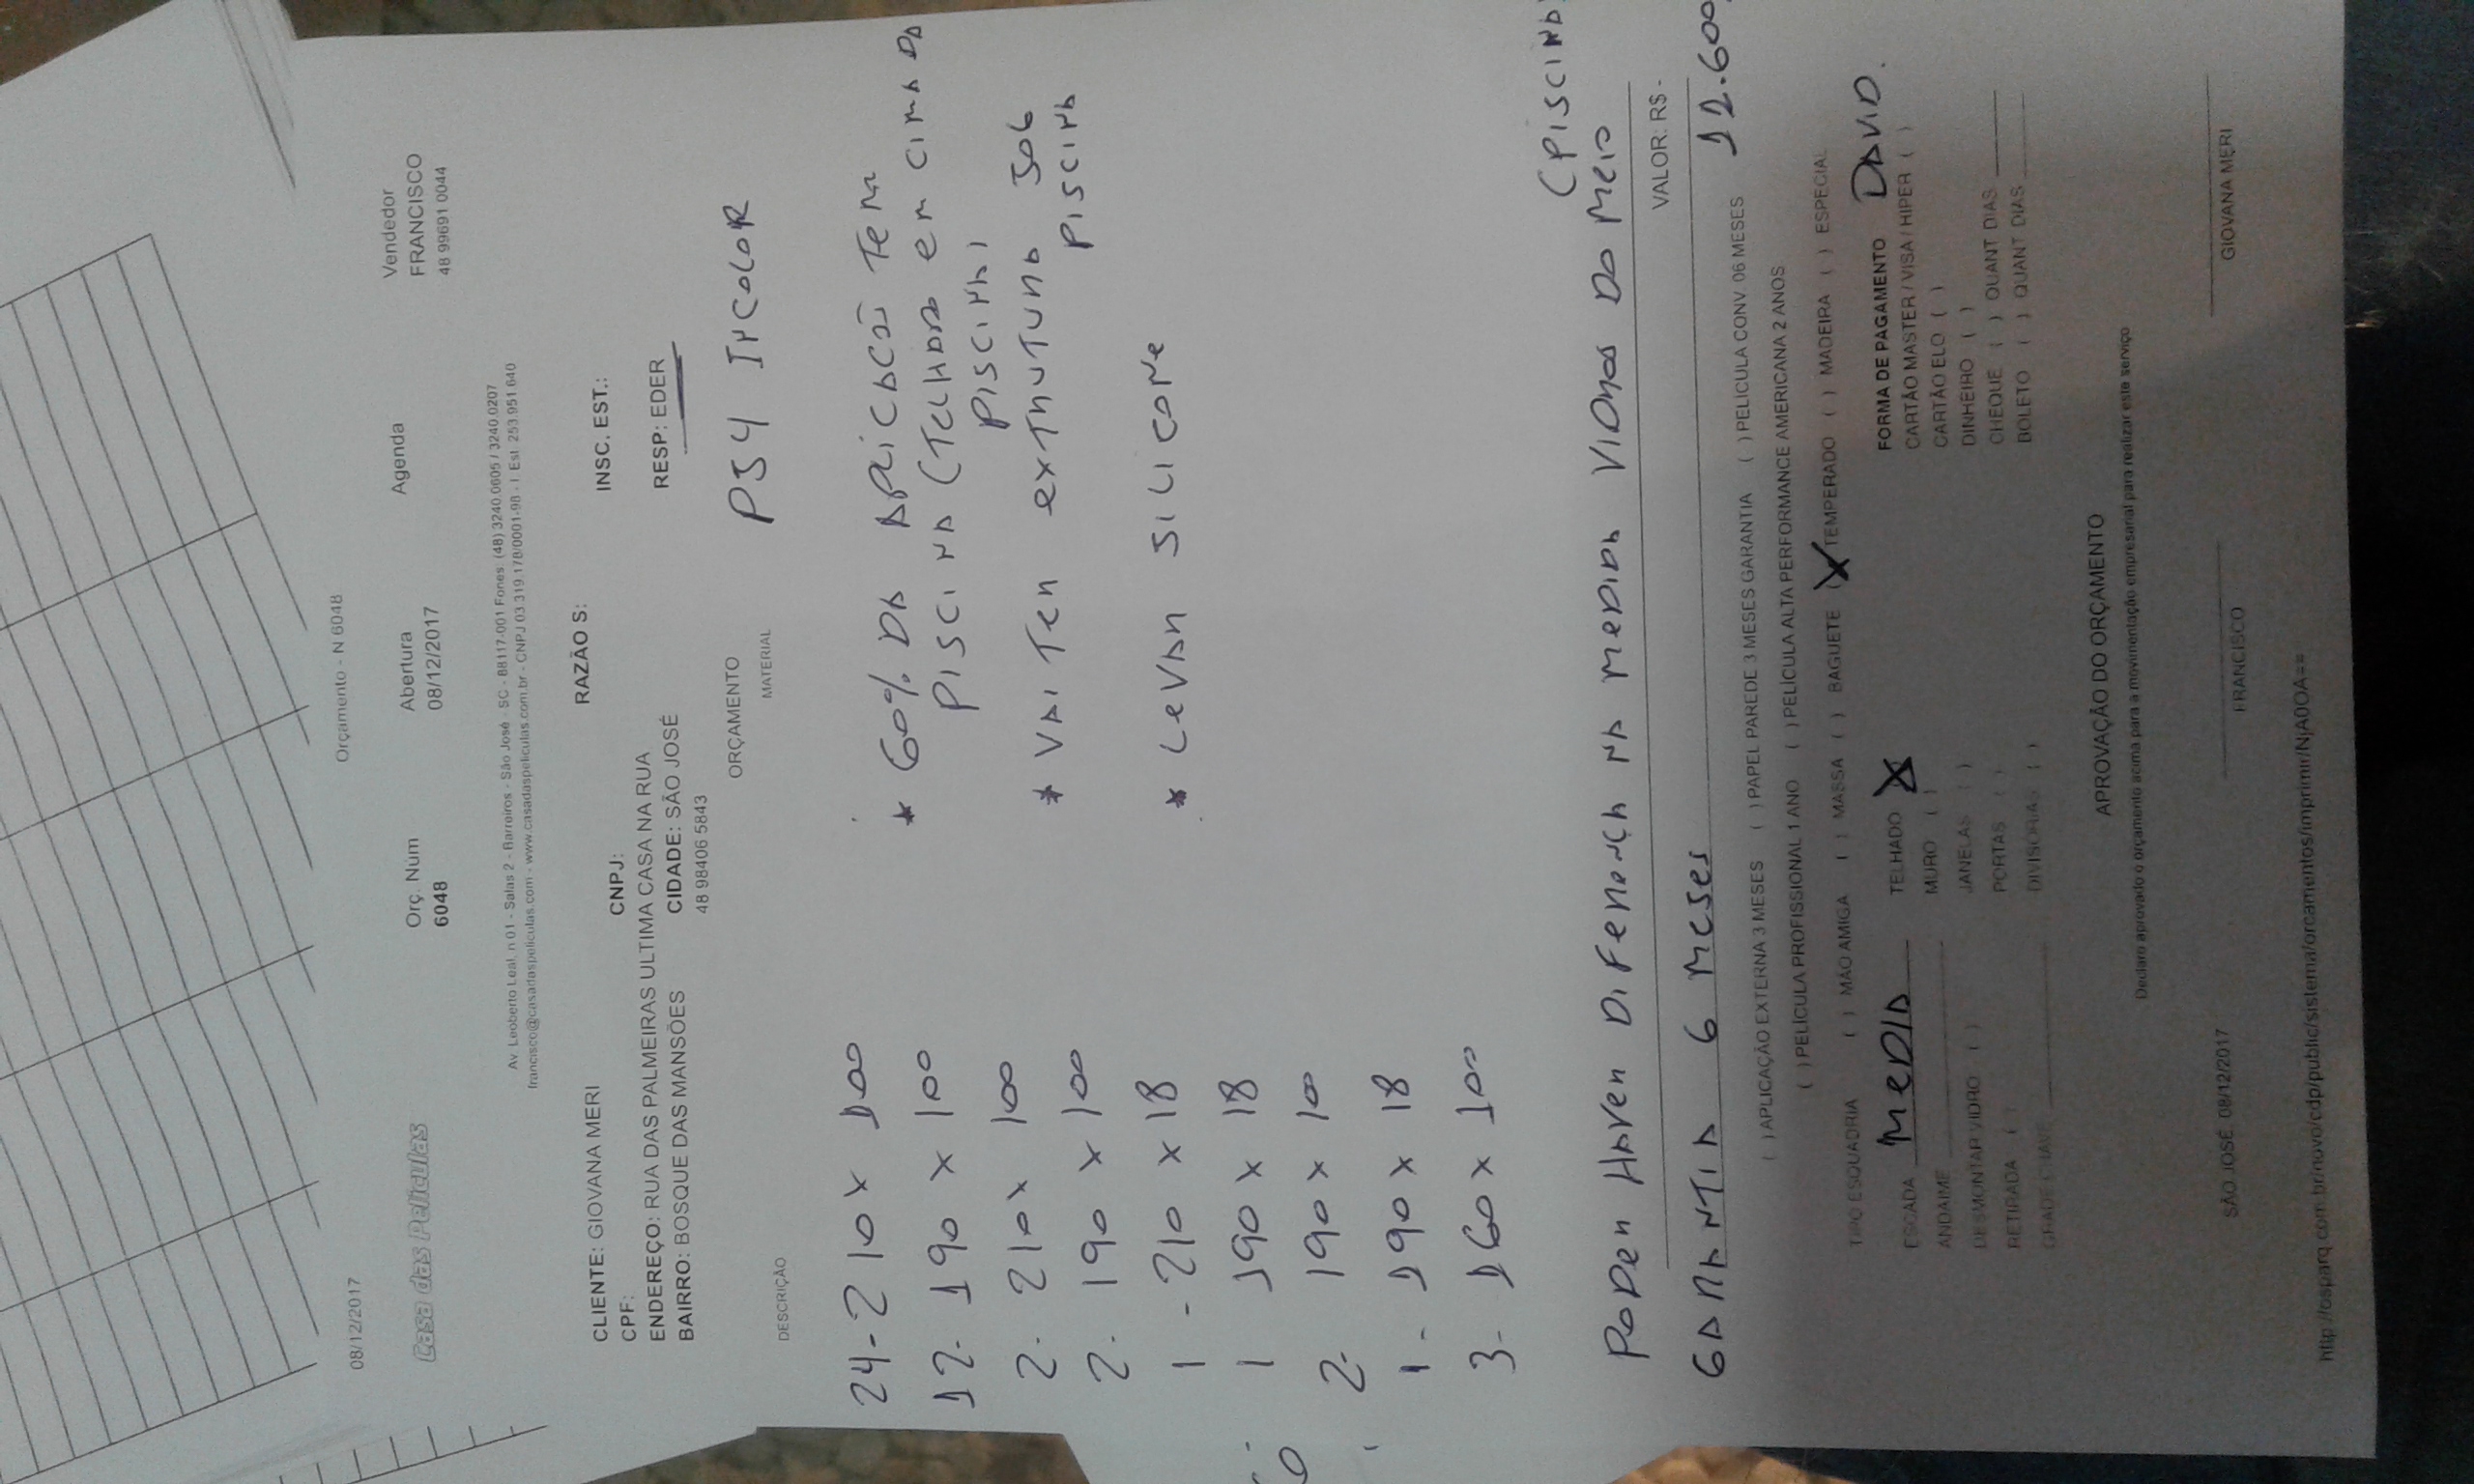 08/12/2017 Orçamento - N 6048
Casa das Películas
Orç. Núm Abertura Agenda Vendedor
6048 08/12/2017 FRANCISCO
48 99691 0044
Av. Leoberto Leal, n 01 - Salas 2 - Barreiros - São José - SC - 88117-001 Fones: (48) 3240.0605 / 3240.0207
francisco@casadaspeliculas.com - www.casadaspeliculas.com.br - CNPJ 03.319.178/0001-98 - I. Est 253.951.640
CLIENTE: GIOVANA MERI RAZÃO S: INSC. EST.:
CPF: CNPJ:
ENDEREÇO: RUA DAS PALMEIRAS ULTIMA CASA NA RUA RESP: EDER
BAIRRO: BOSQUE DAS MANSÕES CIDADE: SÃO JOSÉ
48 98406 5843
ORÇAMENTO
DESCRIÇÃO MATERIAL
PS4 INCOLOR
24 - 210 x 100
12 - 190 x 100
2 - 210 x 100
2 - 190 x 100
1 - 210 x 18
1 190 x 18
2 - 190 x 10
1 - 190 x 18
3 - 160 x 100
* 60% DA APLICAÇÃO TEM
PISCINA (TELHADO EM CIMA DA
PISCINA)
* VAI TER EXTRUTURA SOB
PISCINA
* LEVAR SILICONE
PODER HAVER DIFERENÇA NA MEDIDA VIDROS DO MEIO
(PISCINA)
VALOR: R$ -
GARANTIA 6 MESES 12.600,
( ) APLICAÇÃO EXTERNA 3 MESES ( ) PAPEL PAREDE 3 MESES GARANTIA ( ) PELICULA CONV. 06 MESES
( ) PELÍCULA PROFISSIONAL 1 ANO ( ) PELÍCULA ALTA PERFORMANCE AMERICANA 2 ANOS
TIPO ESQUADRIA ( ) MÃO AMIGA ( ) MASSA ( ) BAGUETE (X) TEMPERADO ( ) MADEIRA ( ) ESPECIAL
ESCADA MEDIA TELHADO X FORMA DE PAGAMENTO DAVID.
ANDAIME MURO ( ) CARTÃO MASTER / VISA / HIPER ( )
DESMONTAR VIDRO ( ) JANELAS ( ) CARTÃO ELO ( )
RETIRADA ( ) PORTAS ( ) DINHEIRO ( )
GRADE CHAVE DIVISORIAS ( ) CHEQUE ( ) QUANT DIAS
BOLETO ( ) QUANT DIAS
APROVAÇÃO DO ORÇAMENTO
Declaro aprovado o orçamento acima para a movimentação empresarial para realizar este serviço
SÃO JOSÉ 08/12/2017 FRANCISCO GIOVANA MERI
http://osparq.com.br/novo/cdp/public/sistema/orcamentos/imprimir/NjA0OA==